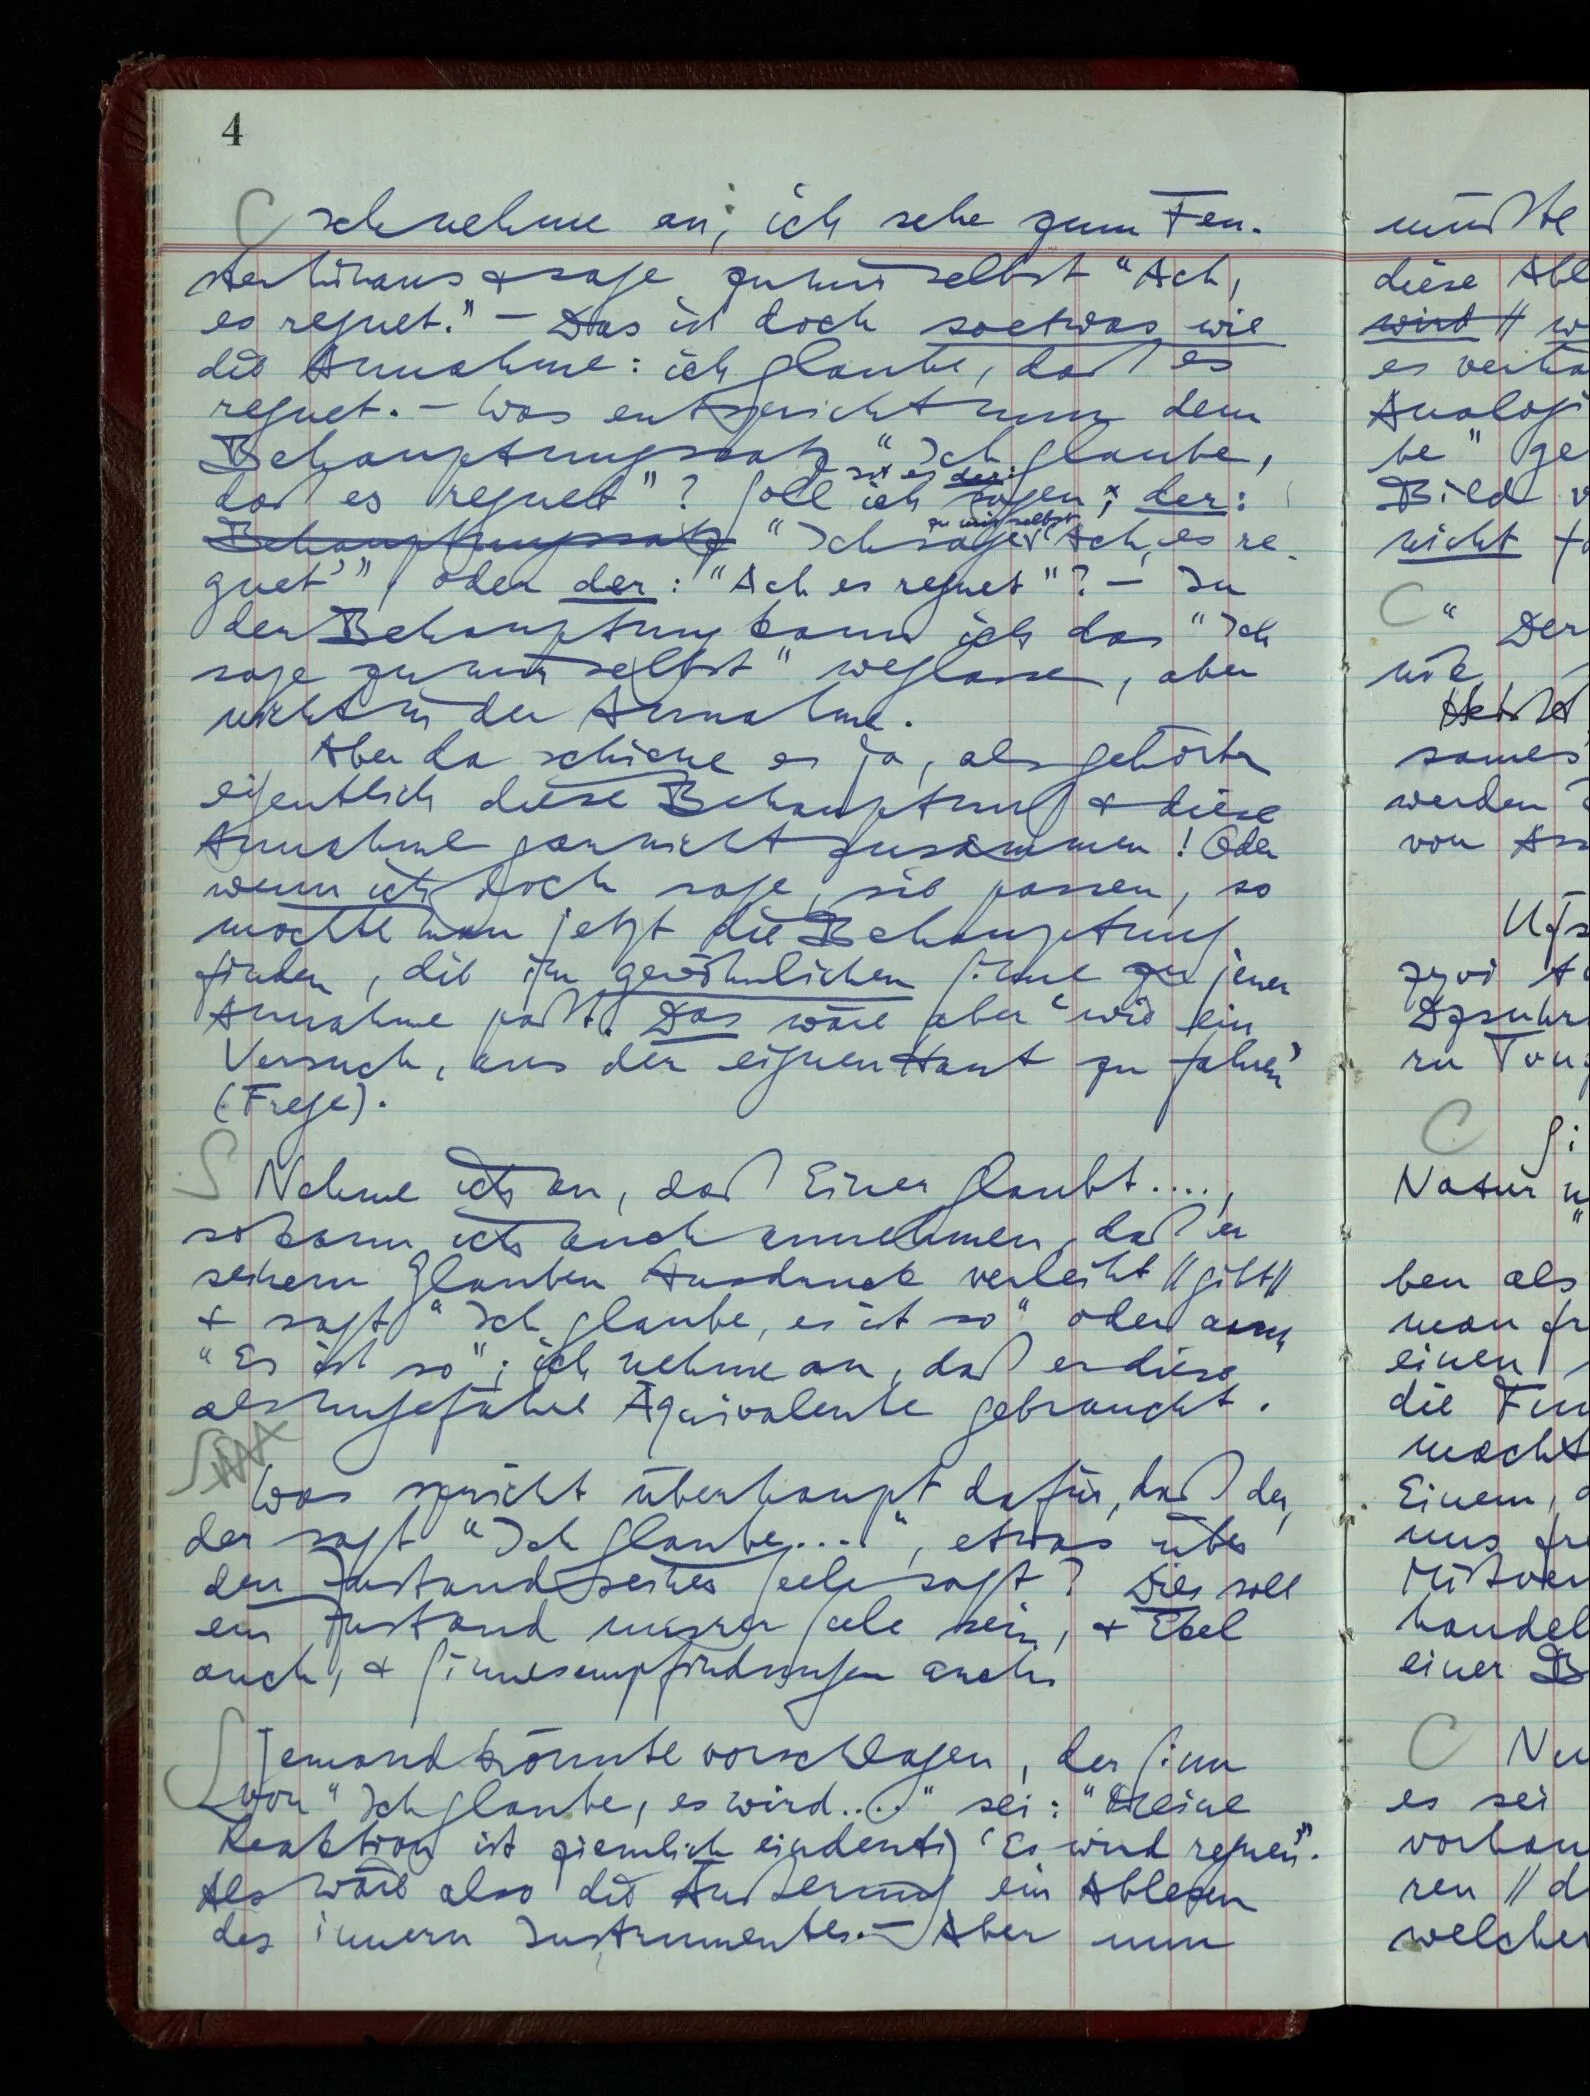 4
Ich nehme an, ich sehe zum Fen-
ster hinaus & sage zu mir selbst “Ach,
es regnet.” – Das ist doch soetwas wie
die Annahme: ich glaube, daß es
regnet. – Was entspricht nun dem
Behauptungssatz “Ich glaube,
ist es der:
daß es regnet”? Soll ich sagen, der:
zu mir selbst
Behauptungssatz “Ich sage ‘Ach, es re-
gnet’”, oder der: “Ach es regnet”? – In
der Behauptung kann ich das “Ich
sage zu mir selbst” weglassen, aber
nicht in der Annahme.
Aber da schiene es ja, als gehörten
eigentlich diese Behauptung & diese
Annahme garnicht zusammen! Oder
wenn ich doch sage, sie passen, so
möchte man jetzt die Behauptung
finden, die im gewöhnlichen Sinne zu jener
Annahme paßt. Das wäre aber ‘wie ein
Versuch, aus der eignen Haut zu fahren’
(Frege).
S Nehme ich an, daß Einer glaubt....,
so kann ich auch annehmen, daß er
seinem Glauben Ausdruck verleiht //gibt//
& sagt “Ich glaube, es ist so” oder auch
“Es ist so”; ich nehme an, daß er diese
als ungefähre Äquivalente gebraucht.
S
Was spricht überhaupt dafür, daß der,
der sagt “Ich glaube....”, etwas über
den Zustand seiner Seele sagt? Dies soll
ein Zustand unsrer Seele sein, & Ekel
auch, & Sinnesempfindungen auch.
S Jemand könnte vorschlagen, der Sinn
von “Ich glaube, es wird....” sei: “Meine
Reaktion ist ziemlich eindeutig ‘Es wird regnen’”.
Als wäre also die Äußerung ein Ablesen
des innern Instrumentes. – Aber nun
müßte
diese Abl
wird // w
es verha
Analogi
be” ge
Bild v
nicht
C “Der
wie
Heißt
sames
werden
von
zyvi
C
Natur
ben als
man fr
einen
die Fun
macht
Einem,
uns fre
Mißver
handel
einer B
C Nu
es sei
vorhan
ren // d
welcher